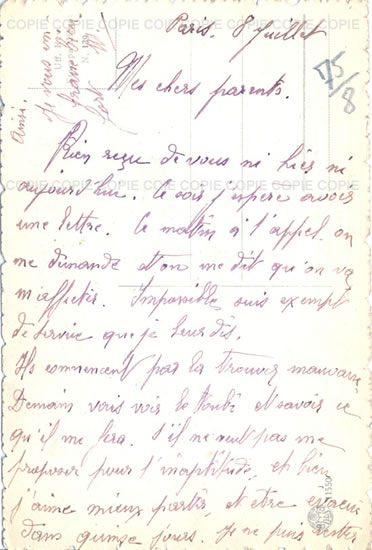 Paris. 8 Juillet
75/8
Mes chers parents.
Rien reçu de vous ni hier ni
aujourd'hui. Ce soir j'espère avoir
une lettre. Ce matin à l'appel on
me demande et on me dit qu'on va
m'affecter. Impossible, suis exempt
de service que je leur dis.
Ils commencent par la trouver mauvaise
Demain vais voir le Toubi et savoir ce
qu'il me fera. S'il ne veut pas me
proposer pour l'inaptitude, eh bien
j'aime mieux partir, et être
dans quinze jours. Je ne puis rester
Ainsi.
Je vous en
COPIE COPIE COPIE COPIE COPIE COPIE COPIE
COPIE COPIE COPIE COPIE COPIE COPIE COPIE